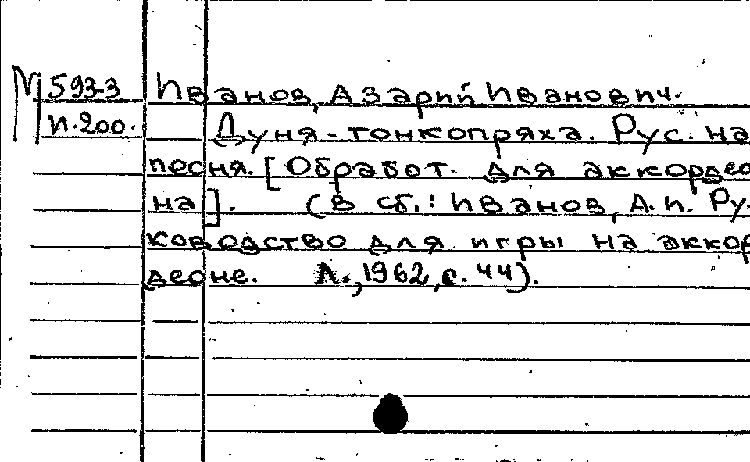 М 593-3
И.200.
Иванов, Азарий Иванович.
Дуня-тонкопряха. Рус. на
песня. [Обработ. для аккордео
на]. (В сб.: Иванов, А.И. Ру-
ководство для игры на аккор
деоне. Л., 1962, с. 44).